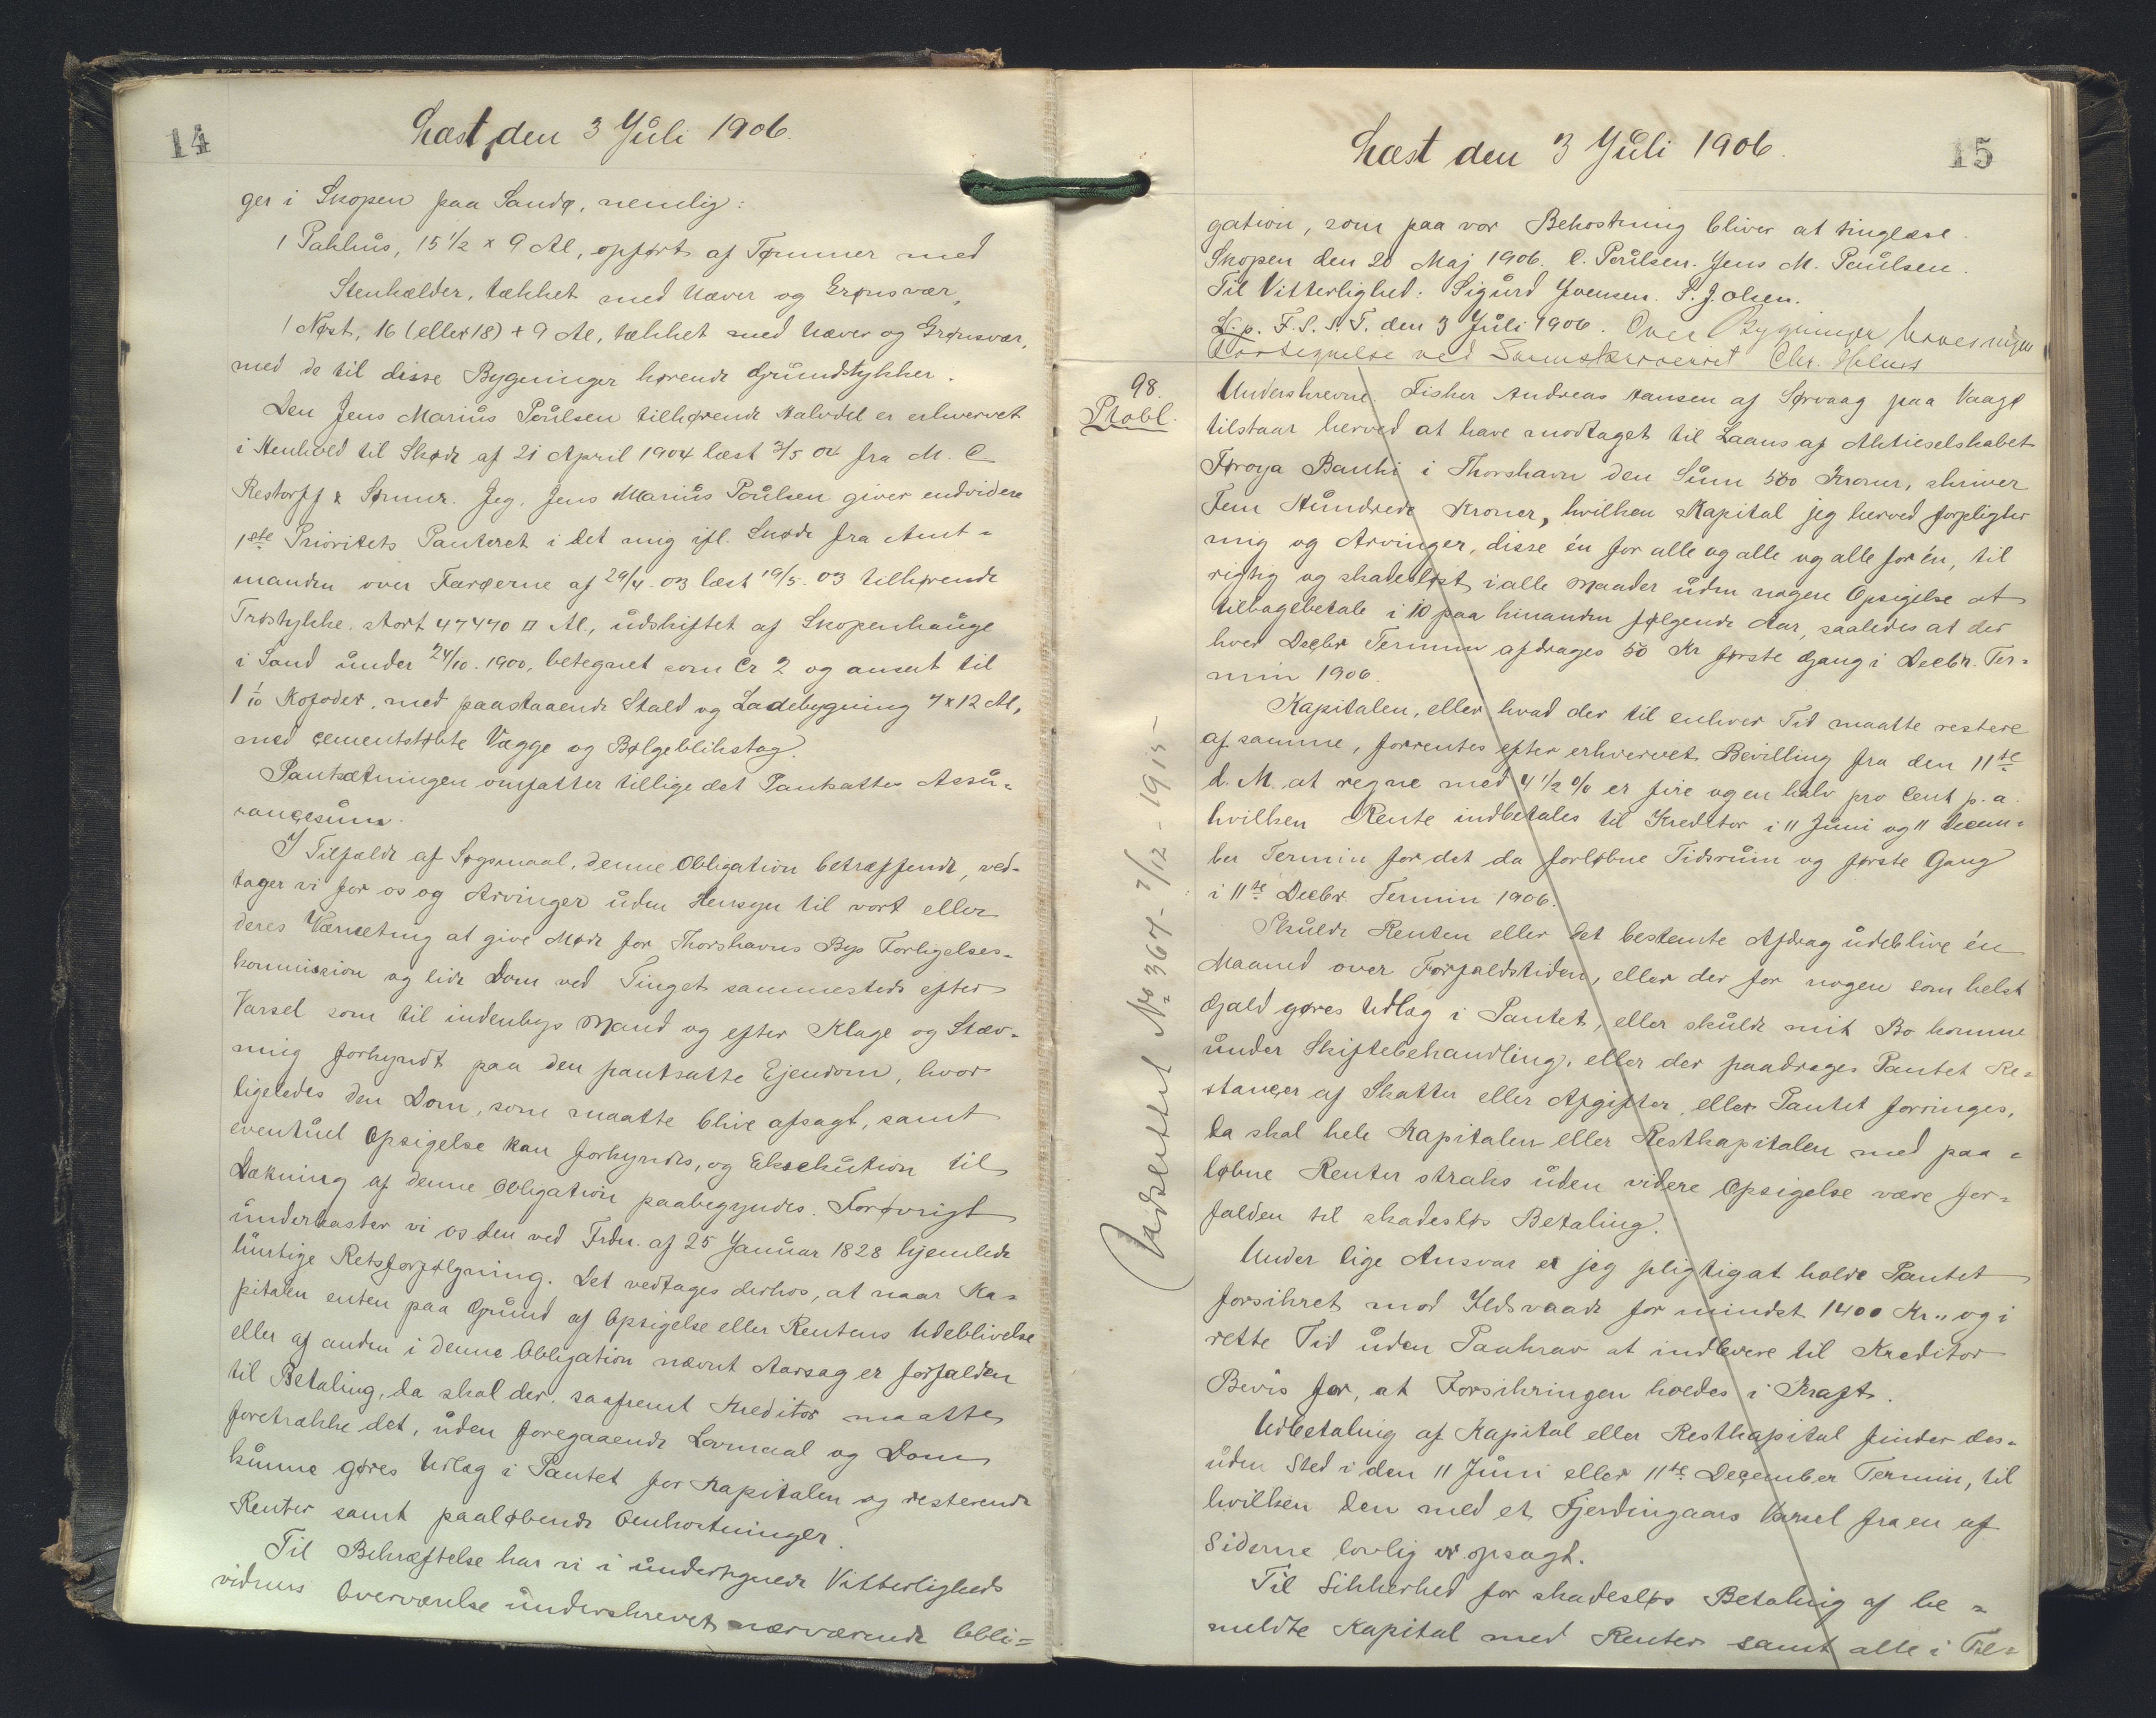 14
Læst den 3 Juli 1906.
ger i Skopen paa Sandø, nemlig:
1 Pakhus, 15 1/2 x 9 Al, opført af Tømmer med
Stenkælder, tækket med Næver og Grønsvær,
1 Nøst, 16 (eller 18) + 9 Al, tækket med Næver og Grønsvær,
med de til disse Bygninger hørende Grundstykker.
Den Jens Marius Poulsen tilhørende Halvdel er erhvervet
i Henhold til Skøde af 21 April 1904 læst 3/5 04 fra M. C
Restorff & Sønner. Jeg, Jens Marius Poulsen giver endvidere
1ste Prioritets Panteret i det mig ifl. Skøde fra Amt-
manden over Færøerne af 29/4. 03 læst 19/5. 03 tilhørende
Trøstykke, stort 47470 □ Al., udskiftet af Skopenhauge
i Sand under 24/10. 1900, betegnet som Cr 2 og ansat til
1 1/10 Kofoder, med paastaaende Stald og Ladebygning 7 x 12 Al,
med cementstøbte Vægge og Bølgebliktag.
Pantsætningen omfatter tillige det Pantsattes Assu-
rancesum.
I Tilfælde af Søgsmaal, denne Obligation betræffende, ved-
tager vi for os og Arvinger uden Hensyn til vort eller
deres Værneting at give Møde for Thorshavns Bys Forligelses-
kommission og lide Dom ved Tinget sammesteds efter
Varsel som til indenbys Mand og efter Klage og Stæv-
ning forkyndt paa den pantsatte Ejendom, hvor
ligeledes den Dom, som maatte blive afsagt, samt
eventuel Opsigelse kan forkyndes, og Eksekution til
Dækning af denne Obligation paabegyndes. Forøvrigt
underkaster vi os den ved Frdn. af 25 Januar 1828 hjemlede
hurtige Retsforfølgning. Det vedtages derhos, at naar Ka-
pitalen enten paa Grund af Opsigelse eller Rentens Udeblivelse
eller af anden i denne Obligation nævnt Aarsag er forfalden
til Betaling, da skal der, saafremt Kreditor maatte
foretrække det, uden foregaaende Lovmaal og Dom
kunne gøres Udlæg i Pantet for Kapitalen og resterende
Renter samt paaløbende Omkostninger.
Til Bekræftelse har vi i undertegnede Vitterligheds
vidners Overværelse underskrevet nærværende Obli-
15
Læst den 3 Juli 1906.
gation, som paa vor Bekostning bliver at tinglæse.
Skopen den 20 Maj 1906. C. Poulsen. Jens M. Poulsen.
Til Vitterlighed: Sigurd Joensen. P. J. Olsen.
L. p. F. S. S. T. den 3 Juli 1906. Over Bygninger haves ingen
Fortegnelse ved Sorenskriveriet Chr. Holm
98.
Ptobl.
Underskrevne Fisker Andreas Hansen af Sørvaag paa Vaagø
tilstaar herved at have modtaget til Laans af Aktieselskabet
Føroya Banki i Thorshavn den Sum 500 Kroner, skriver
Fem Hundrede Kroner, hvilken Kapital jeg herved forpligter
mig og Arvinger, disse én for alle og alle for én, til
rigtig og skadesløst i alle Maader uden nogen Opsigelse at
tilbagebetale i 10 paa hinanden følgende Aar, saaledes at der
hver Decbr Termin afdrages 50 Kr første Gang i Decbr. Ter-
min 1906.
Kapitalen, eller hvad der til enhver Tid maatte restere
af samme, forrentes efter erhvervet Bevilling fra den 11te
d. M. at regne med 4 1/2 % er fire og en halv pro Cent p. a.
hvilken Rente indbetales til Kreditor i 11 Juni og 11 Decem-
ber Termin for det da forløbne Tidsrum og første Gang
i 11te Decbr. Termin 1906.
Skulde Renten eller det bestemte Afdrag udeblive én
Maaned over Forfaldstiden, eller der for nogen som helst
Gæld gøres Udlæg i Pantet, eller skulde mit Bo komme
under Skiftebehandling, eller der paadrages Pantet Re-
stancer af Skatter eller Afgifter, eller Pantet forringes,
da skal hele Kapitalen eller Restkapitalen med paa-
løbne Renter straks uden videre Opsigelse være for-
falden til skadesløs Betaling.
Under lige Ansvar er jeg pligtig at holde Pantet
forsikret mod Ildsvaade for mindst 1400 Kr. og i
rette Tid uden Paakrav at indlevere til Kreditor
Bevis for, at Forsikringen holdes i Kraft.
Udbetaling af Kapital eller Restkapital finder des-
uden Sted i den 11 Juni eller 11te December Termin, til
hvilken den med et Fjerdingaars Varsel fra en af
Siderne lovlig er opsagt.
Til Sikkerhed for skadesløs Betaling af be-
meldte Kapital med Renter samt alle i Til-
Udslettet No 367 - 7/12 - 1915 -